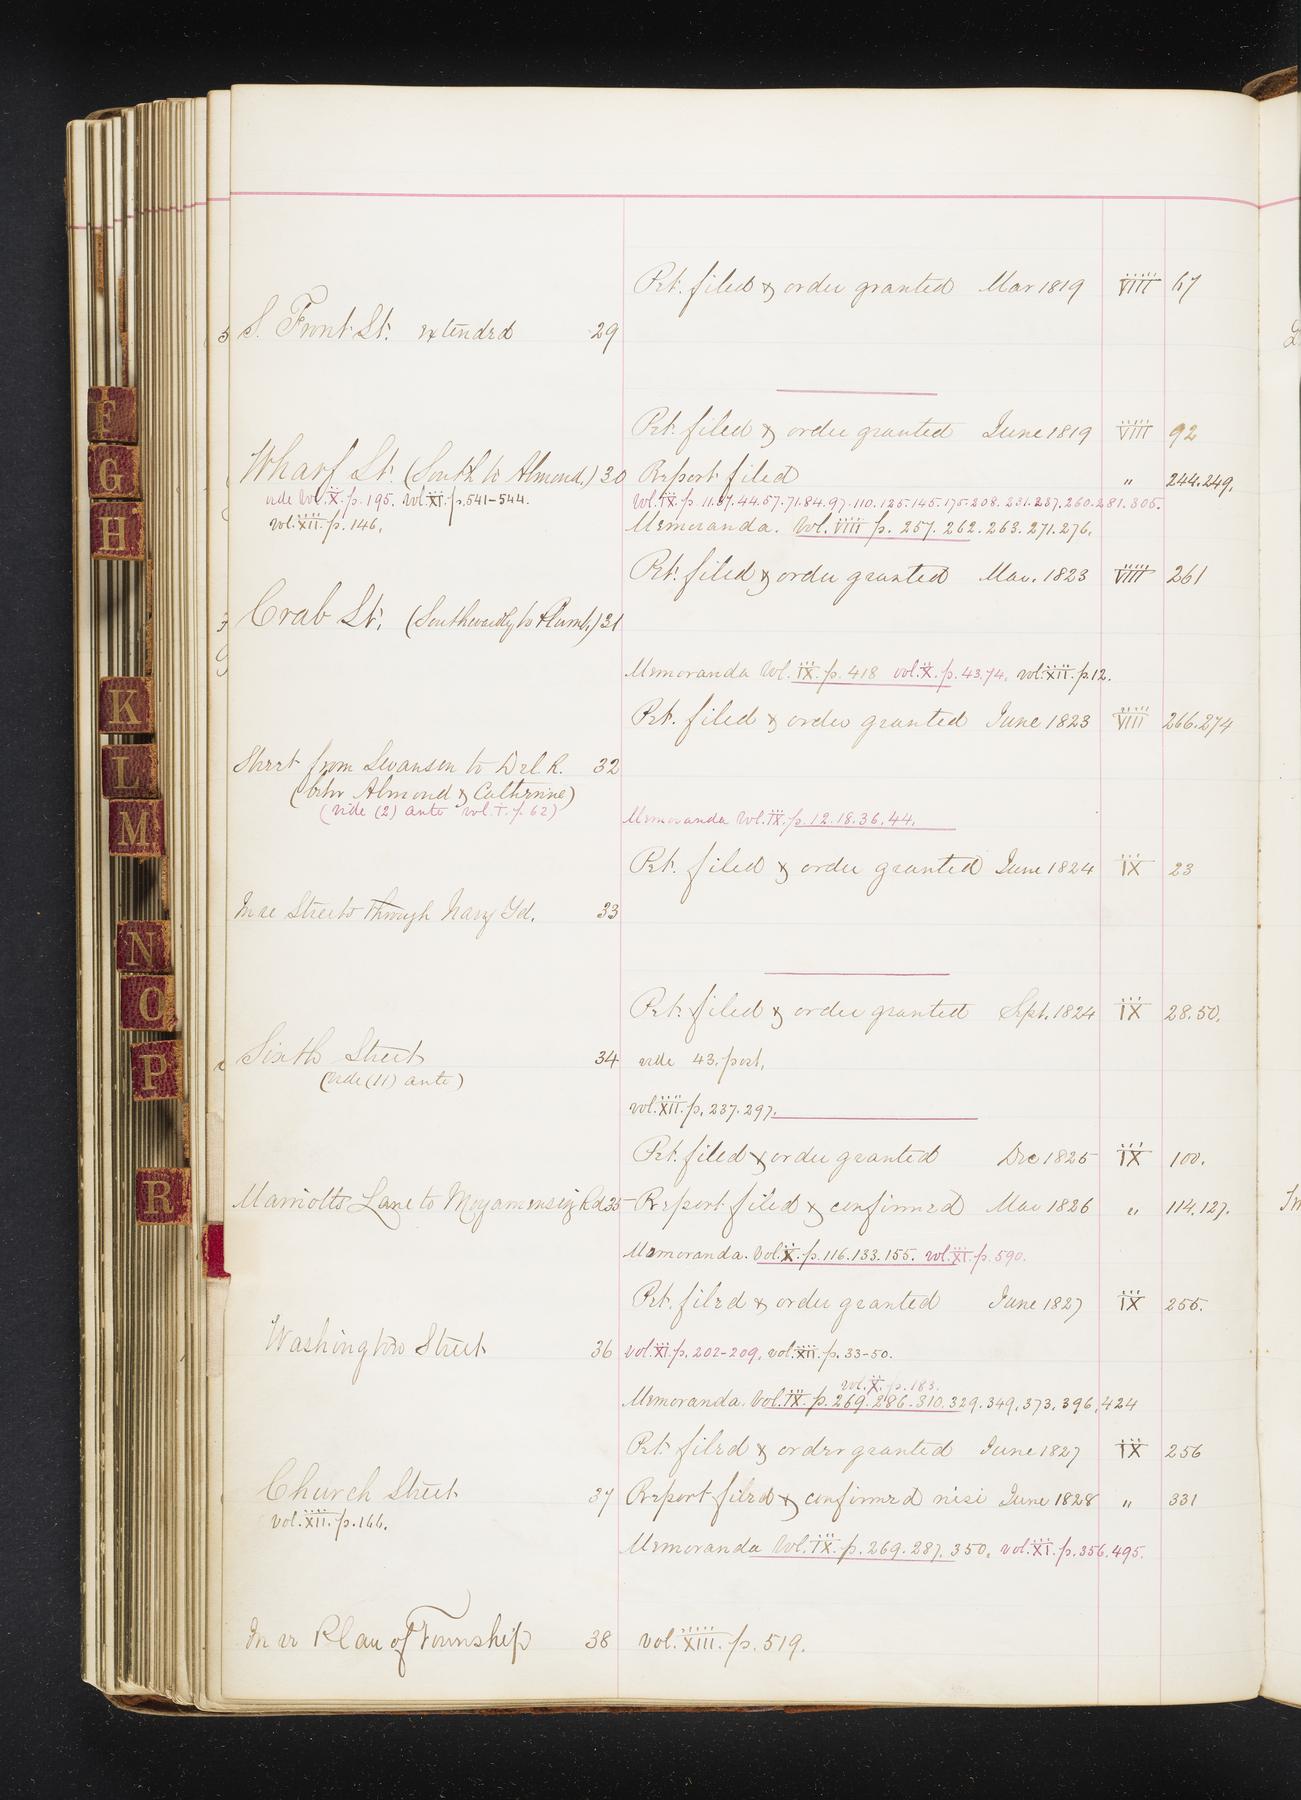 Pet. filed & order granted Mar 1819 VIII 67
S. Front St. extended 29
Pet. filed & order granted June 1819 VIII 92
Wharf St. (South to Almond.) 30 Report filed " 244.249.
vide Vol. X. p. 195. Vol. XI. p. 541-544. Vol. IX. p. 11.37.44.57.71.84.97.110.125.145.175.208.231.237.260.281.305.
vol. XII. p. 146. Memoranda. Vol. VIII p. 257. 262. 263. 271. 276.
Pet. filed & order granted Mar. 1823 VIII 261
Crab St. (Southwardly to Plumb.) 31
Memoranda Vol. IX. p. 418 vol. X. p. 43.74. vol. XII. p. 12.
Pet. filed & order granted June 1823 VIII 266.274
Street from Swanson to Del. R. 32
(betw Almond & Catherine)
(vide (2) ante vol. I. p. 62) Memoranda Vol. IX. p. 12.18.36.44.
Pet. filed & order granted June 1824 IX 23
In re Streets through Navy Yd. 33
Pet. filed & order granted Sept. 1824 IX 28.50.
Sixth Street 34 vide 43. post.
(vide (11) ante)
vol. XII. p. 237.297.
Pet. filed & order granted Dec 1825 IX 100.
Marriotts Lane to Moyamensing Rd 35 Report filed & confirmed Mar 1826 " 114.127.
Memoranda. Vol. X. p. 116.133.155. vol. XI. p. 590.
Pet. filed & order granted June 1827 IX 255.
Washington Street 36 vol. XI. p. 202-209. vol. XII. p. 33-50.
vol. X. p. 183.
Memoranda. Vol. IX. p. 269. 286. 310. 329. 349. 373. 396. 424
Pet. filed & order granted June 1827 IX 256
Church Street 37 Report filed & confirmed nisi June 1828 " 331
vol. XII. p. 166.
Memoranda Vol. IX. p. 269. 287. 350. vol. XI. p. 356. 495.
In re Plan of Township 38 vol. XIII. p. 519.
F
G
H
K
L
M
N
O
P
R